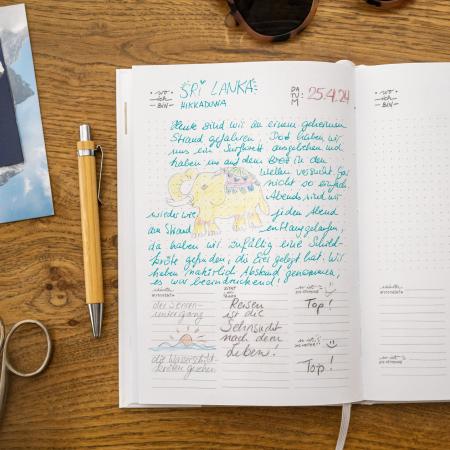 • WO ICH BIN •
SRI LANKA
HIKKADUWA
DATUM
25.4.24
Heute sind wir zu einem geheimen
Strand gefahren. Dort haben wir
uns ein Surfbrett ausgeliehen und
haben uns auf dem Brett in den
Wellen versucht. Gar
nicht so einfach.
Abends sind wir
wieder wie jeden Abend
am Strand entlanggelaufen,
da haben wir zufällig eine Schild-
kröte gefunden, die Eier gelegt hat. Wir
haben natürlich Abstand genommen,
es war beeindruckend!
der Sonnen-
untergang
die Wasserschild-
kröten gesehen
Reisen
ist die
Sehnsucht
nach dem
Leben!
Top!
Top!
• WO ICH BIN •